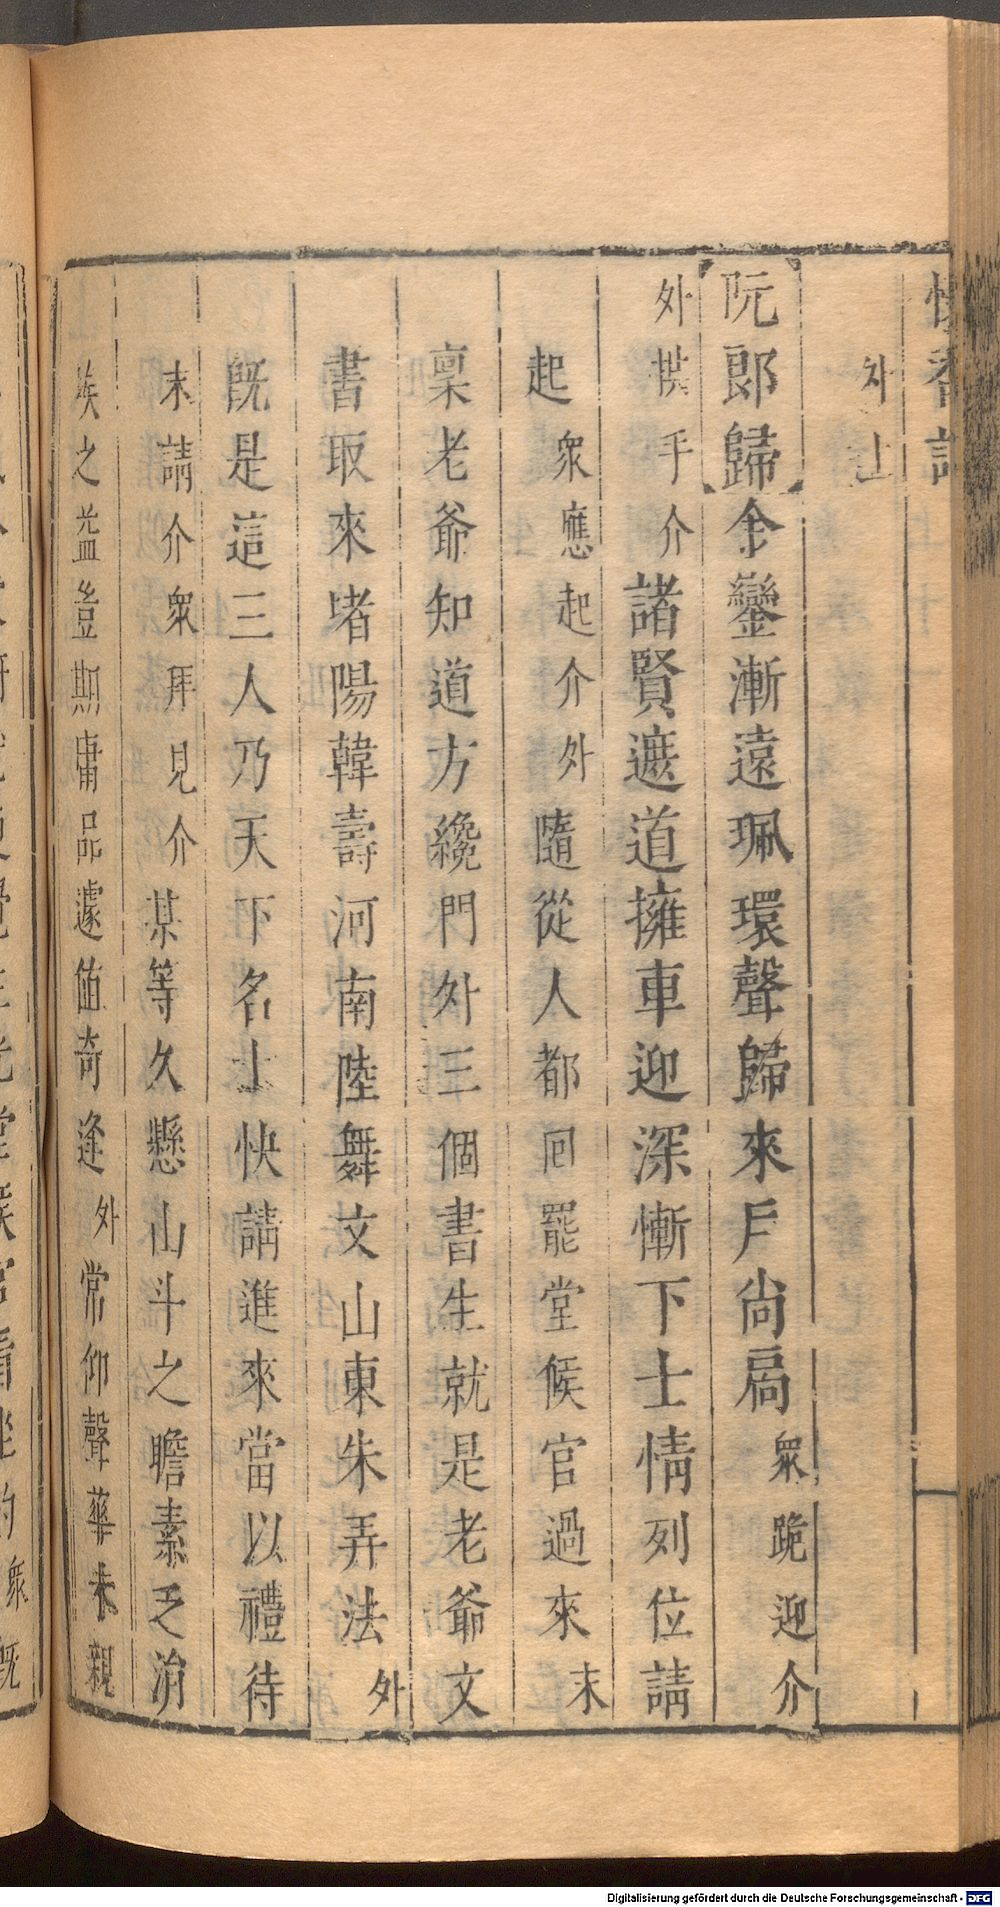 懷香記
外上
阮郎歸金鑾漸遠珮環聲歸來戶尚扃衆跪迎介
外拱手介諸賢遮道擁車迎深慚下士情列位請
起衆應起介外隨從人都回罷堂候官過來末
稟老爺知道方纔門外三個書生就是老爺文
書取來堵陽韓壽河南陸舞文山東朱弄法外
旣是這三人乃天下名士快請進來當以禮待
末請介衆拜見介某等久懸山斗之瞻素乏治
族之益豈期庸品遽值奇逢外常仰聲華未親
Digitalisierung gefördert durch die Deutsche Forschungsgemeinschaft - DFG